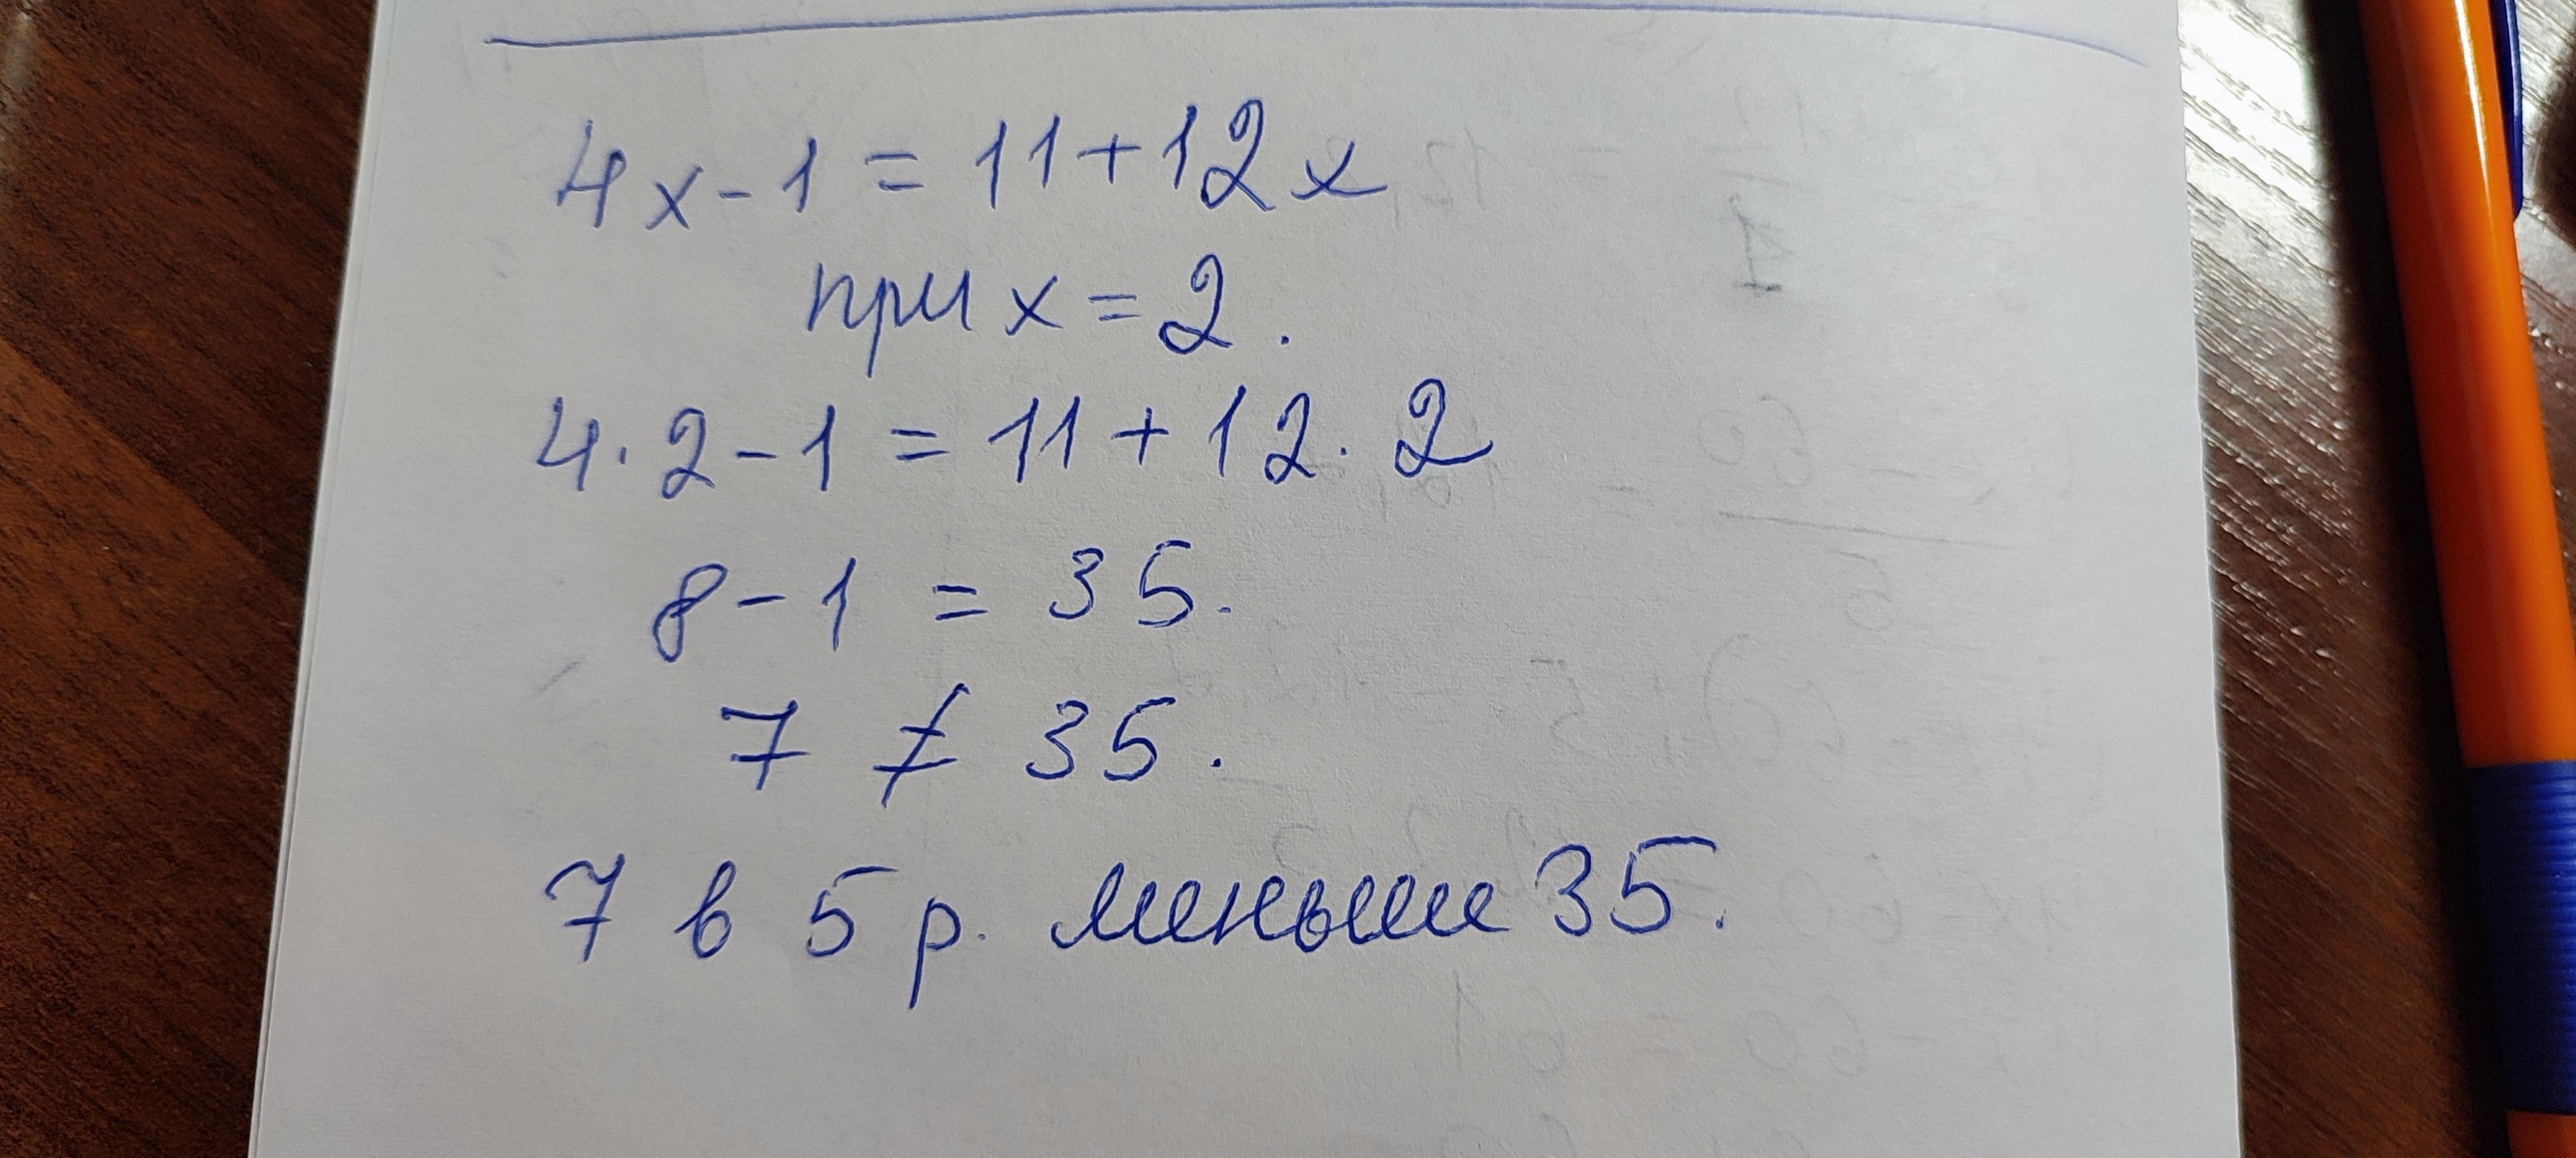 4x-1 = 11+12x
при x = 2.
4·2-1 = 11+12·2
8-1 = 35.
7 ≠ 35.
7 в 5 р. меньше 35.